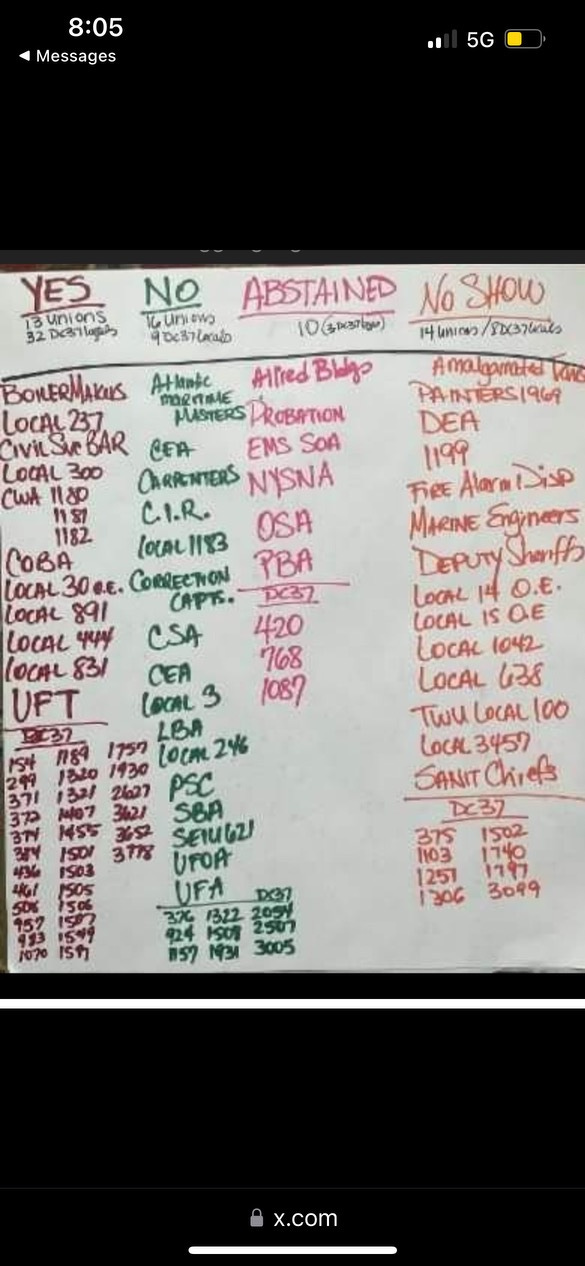 8:05
5G
◀ Messages
YES
13 unions
32 DC37 locals
BOILERMAKERS
LOCAL 237
Civil Svc BAR
LOCAL 300
CWA 1180
1181
1182
COBA
LOCAL 30 O.E.
LOCAL 891
LOCAL 444
LOCAL 831
UFT
DC37
154 1189 1757
299 1320 1930
371 1321 2627
372 1407 3621
374 1455 3652
384 1501 3778
436 1503
461 1505
508 1506
957 1507
983 1549
1070 1597
NO
16 unions
9 DC37 Locals
Atlantic
MARITIME
MASTERS
CEA
CARPENTERS
C.I.R.
LOCAL 1183
CORRECTION
CAPTS.
CSA
CEA
LOCAL 3
LBA
LOCAL 246
PSC
SBA
SEIU 621
UFOA
UFA
DC37
376 1322 2054
924 1508 2507
1157 1931 3005
ABSTAINED
10 (3 DC37
Allied Bldgs
PROBATION
EMS SOA
NYSNA
OSA
PBA
DC37
420
768
1087
No SHOW
14 unions / 8 DC37 locals
Amalgamated
PAINTERS 1969
DEA
1199
FIRE Alarm Disp
MARINE Engineers
DEPUTY Sheriffs
LOCAL 14 O.E.
LOCAL 15 O.E
LOCAL 1042
LOCAL 638
TWU LOCAL 100
LOCAL 3457
SANIT Chiefs
DC37
375 1502
1103 1740
1251 1797
1306 3099
x.com